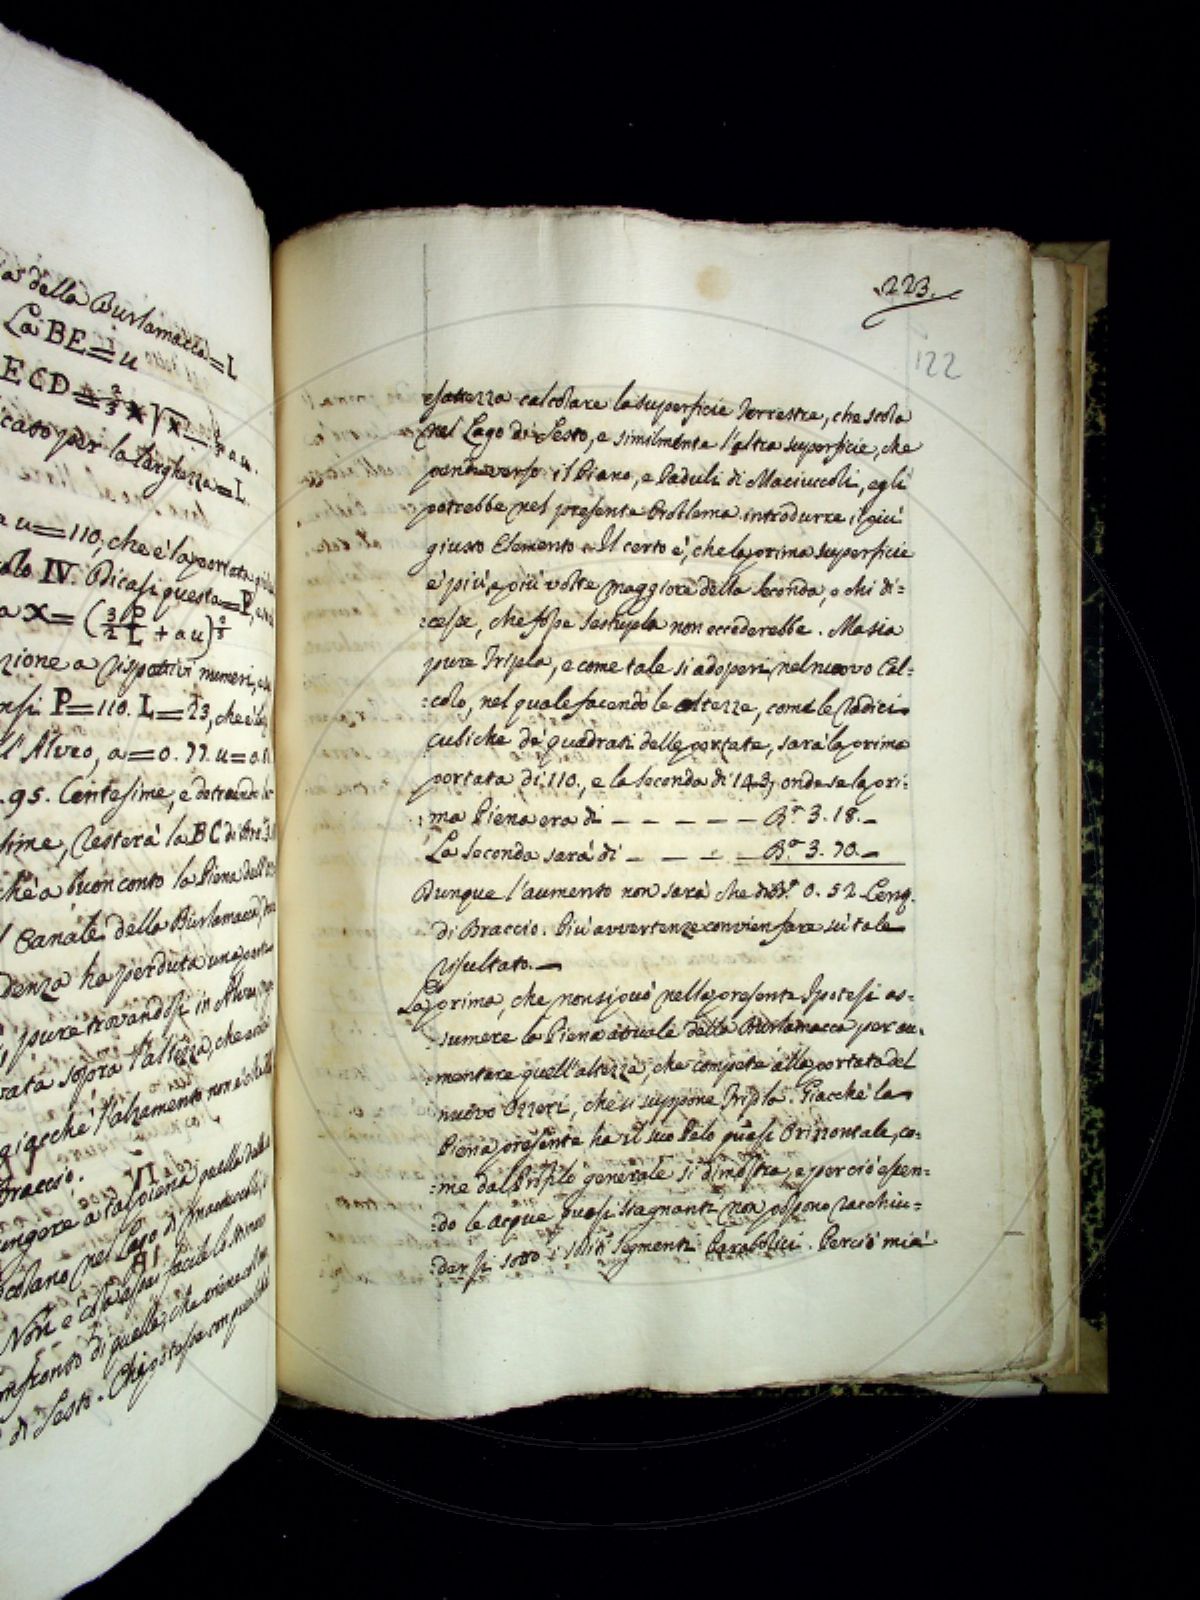 a della Burlamacca=L
La BE=u
ECD=⅔x√x—⅔au.
cato per la larghezza=L.
a u=110, che è la portata
olo IV. Dicasi questa=P,
a x=(3/2 P/L + au)⅔
zione a rispettivi numeri,
nsi P=110. L=23, che è la
l'Alveo, a=0.77. u=0.
.95. Centesime, e detraendo
sime, resterà la BC di Bra 3.
chè a buon conto la Piena dell'
l Canale della Burlamacca,
denza ha perduta una
pure trovandosi in Alveo
vata sopra l'altezza, che
giacchè l'alzamento non è che
Braccio.
IV
ungere a tal piena quella della
colano nel Lago di Maciuccoli,
Non è cosa assai facile lo
onfronto di quelle, che viene
di Sesto. Chi potesse con più
223.
122
esattezza calcolare la superficie Terrestre, che scola
nel Lago di Sesto, e similmente l'altra superficie, che
pende verso il Piano, e Paduli di Maciuccoli, egli
potrebbe nel presente Problema introdurre il più
giusto Elemento. Il certo è, che la prima superficie
è più, e più volte maggiore della seconda, e chi di=
=cesse, che fosse sestupla non eccederebbe. Ma sia
pure Tripla, e come tale si adoperi nel nuovo Cal=
=colo, nel quale facendo le altezze, come le radici
cubiche de' quadrati delle portate, sarà la prima
portata di 110., e la seconda di 143; onde se la pri=
=ma Piena era di — — — — — Br. 3.18.—
La seconda sarà di — — — — Br. 3.70.—
Dunque l'aumento non sarà che di Br. 0.52 Cent.
di Braccio. Più avvertenze convien fare sù tale
risultato.—
La prima, che non si può nella presente Ipotesi as=
=sumere la Piena attuale della Burlamacca per au=
=mentare quell'altezza, che compete alla portata del
nuovo Ozzeri, che si suppone Tripla. Giacchè la
Piena presente ha il suo Pelo quasi Orizzontale, co=
=me dal Profilo generale si dimostra, e perciò essen=
=do le acque quasi stagnanti non possono racchiu=
=dersi sotto i soliti segmenti Parabolici. Perciò mia